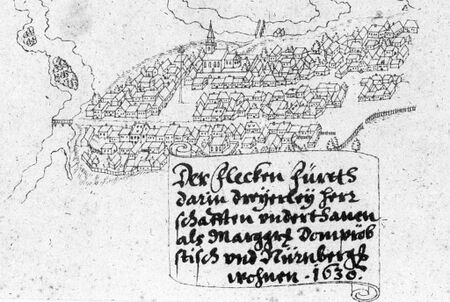 Der Flecken Füreth
darin dreyerley herr
schafften underthanen
als Marggrf Dompröb
stisch und Nürnbergß
wohnen - 1630